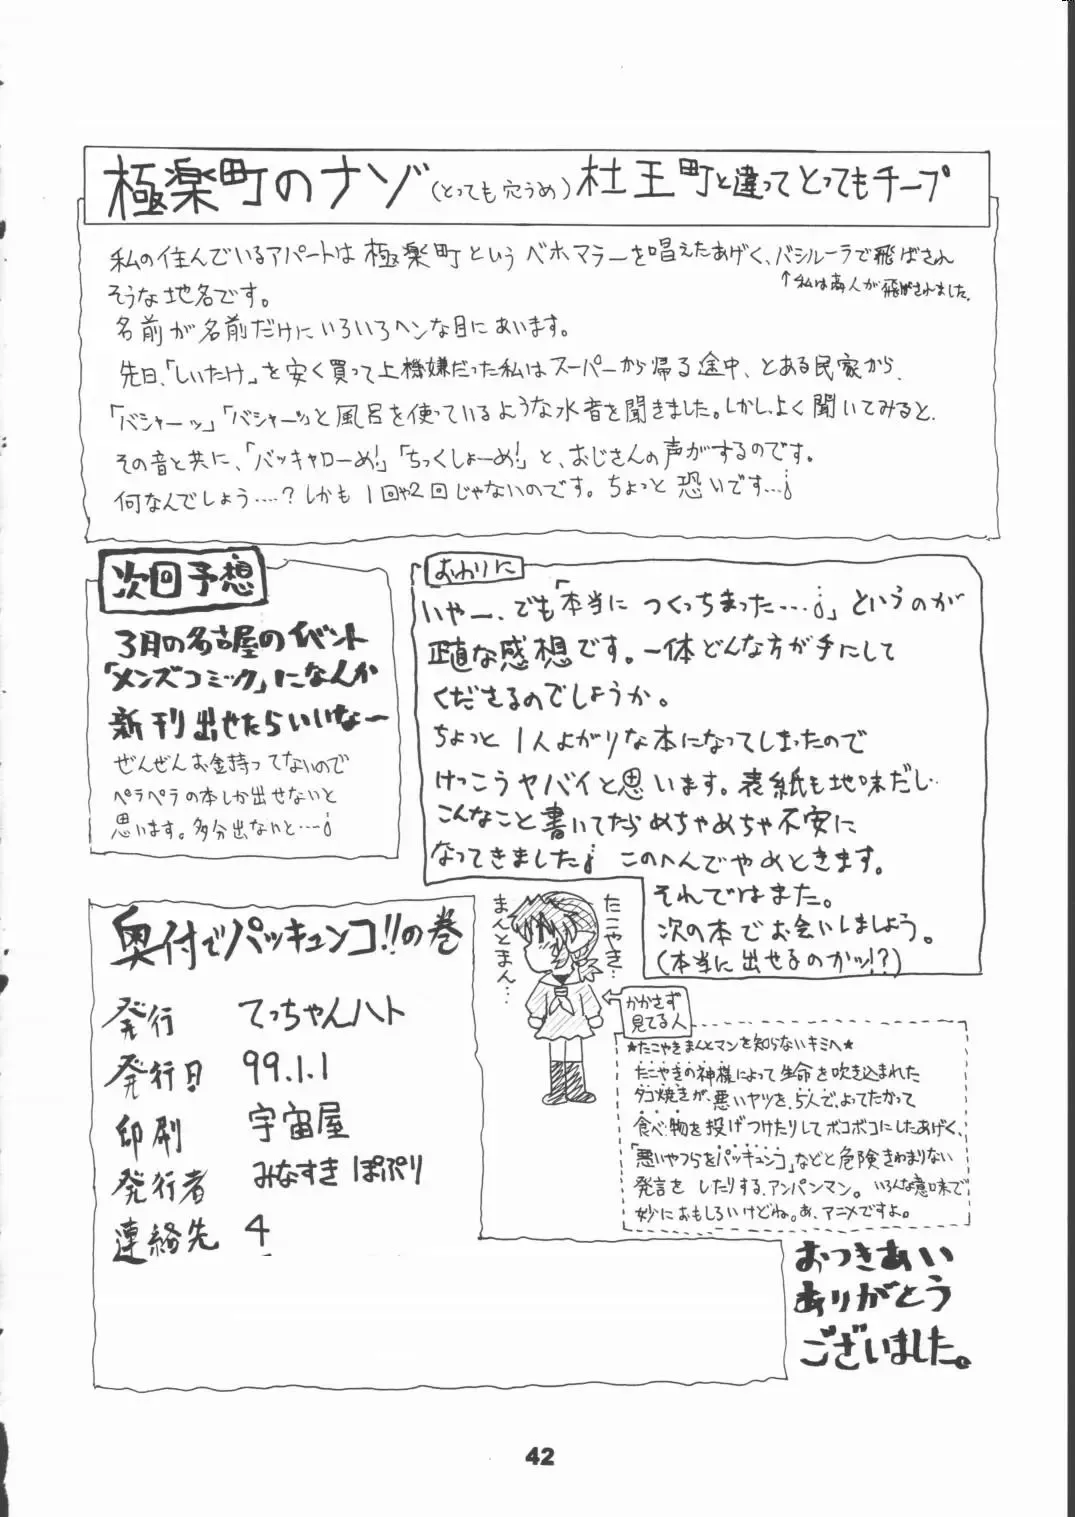 極楽町のナゾ(とっても穴うめ) 杜王町と違ってとってもチープ
私の住んでいるアパートは極楽町というベホマラーを唱えたあげく、バシルーラで飛ばされ
↑私は商人が飛ばされました。
そうな地名です。
名前が名前だけにいろいろヘンな目にあいます。
先日、「しいたけ」を安く買って上機嫌だった私はスーパーから帰る途中、とある民家から、
「バシャーッ」「バシャーッ」と風呂を使っているような水音を聞きました。しかし、よく聞いてみると、
その音と共に、「バッキャローめ!」「ちっくしょーめ!」と、おじさんの声がするのです。
何なんでしょう……?しかも1回や2回じゃないのです。ちょっと恐いです…;
次回予想
3月の名古屋のイベント
「メンズコミック」になんか
新刊出せたらいいなー
ぜんぜんお金持ってないので
ペラペラの本しか出せないと
思います。多分出ないと…;
おわりに
いやー、でも「本当につくっちまった…;」というのが
正直な感想です。一体どんな方が手にして
くださるのでしょうか。
ちょっと1人よがりな本になってしまったので
けっこうヤバイと思います。表紙も地味だし…
こんなこと書いてたらめちゃめちゃ不安に
なってきました; このへんでやめときます。
それではまた。
次の本でお会いしましょう。
(本当に出せるのかッ!?)
奥付でパッキュンコ!!の巻
発行 てっちゃんハト
発行日 99.1.1
印刷 宇宙屋
発行者 みなすき ぽぷり
連絡先 4
たこやき…
まんとまん…
かかさず
見てる人
★たこやきまんとマンを知らないキミへ★
たこやきの神様によって生命を吹き込まれた
タコ焼きが、悪いヤツを、5人で、よってたかって
食べ物を投げつけたりしてボコボコにしたあげく、
「悪いやつらをパッキュンコ」などと危険きわまりない
発言をしたりする、アンパンマン。いろんな意味で
妙におもしろいけどね。あ、アニメですよ。
おつきあい
ありがとう
ございました。
42